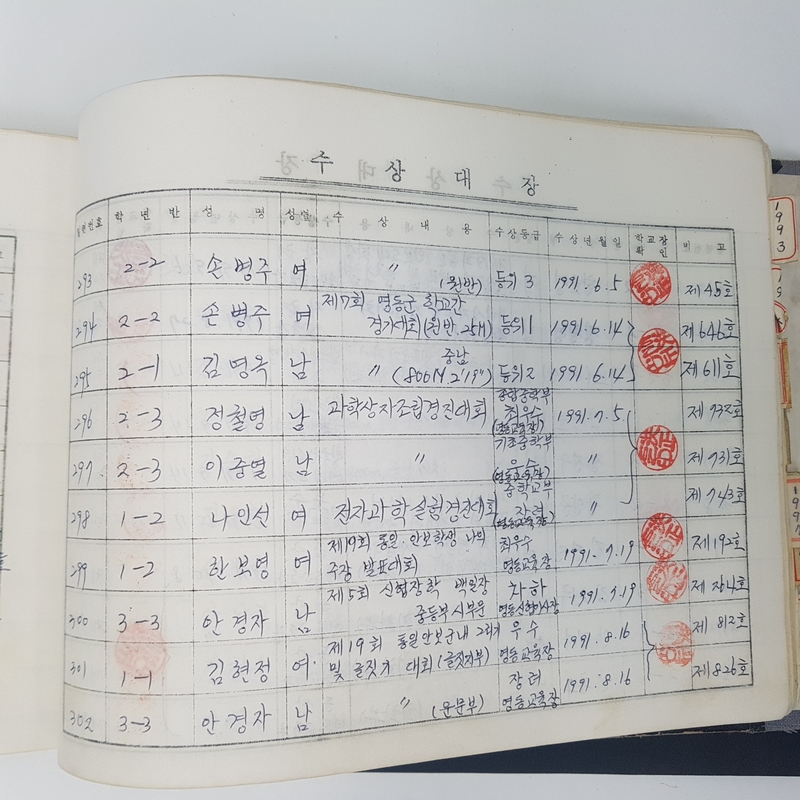 수 상 대 장
일련번호 학 년 반 성 명 성별 수 상 내 용 수상등급 수 상 년 월 일 학교장 확 인 비 고
293 2-2 손병주 여 〃 (원반) 등위 3 1991. 6. 5 제45호
294 2-2 손병주 여 제7회 영동군 학교간 경기대회 (원반 25M) 등위 1 1991. 6. 14 제646호
295 2-1 김명옥 남 〃 중남 (800M 2'19") 등위 2 1991. 6. 14 제611호
296 2-3 정철영 남 과학상자조립경진대회 종합중학부 최우수 (영동교육장) 1991. 7. 5 제732호
297 2-3 이중열 남 〃 기초중학부 우수 (영동교육장) 〃 제731호
298 1-2 나인선 여 전자과학실험경진대회 중학교부 장려 (영동교육장) 〃 제743호
299 1-2 한보영 여 제19회 통일·안보학생 나의 주장 발표대회 최우수 영동교육장 1991. 7. 19 제192호
300 3-3 안경자 남 제5회 신협장학 백일장 중등부 시부문 차하 1991. 7. 19
301 1-1 김현정 여 제19회 통일안보군내 그리기 및 글짓기 대회 (글짓기부) 우수 영동교육장 1991. 8. 16 제812호
302 3-3 안경자 남 〃 (운문부) 장려 영동교육장 1991. 8. 16 제826호
1993